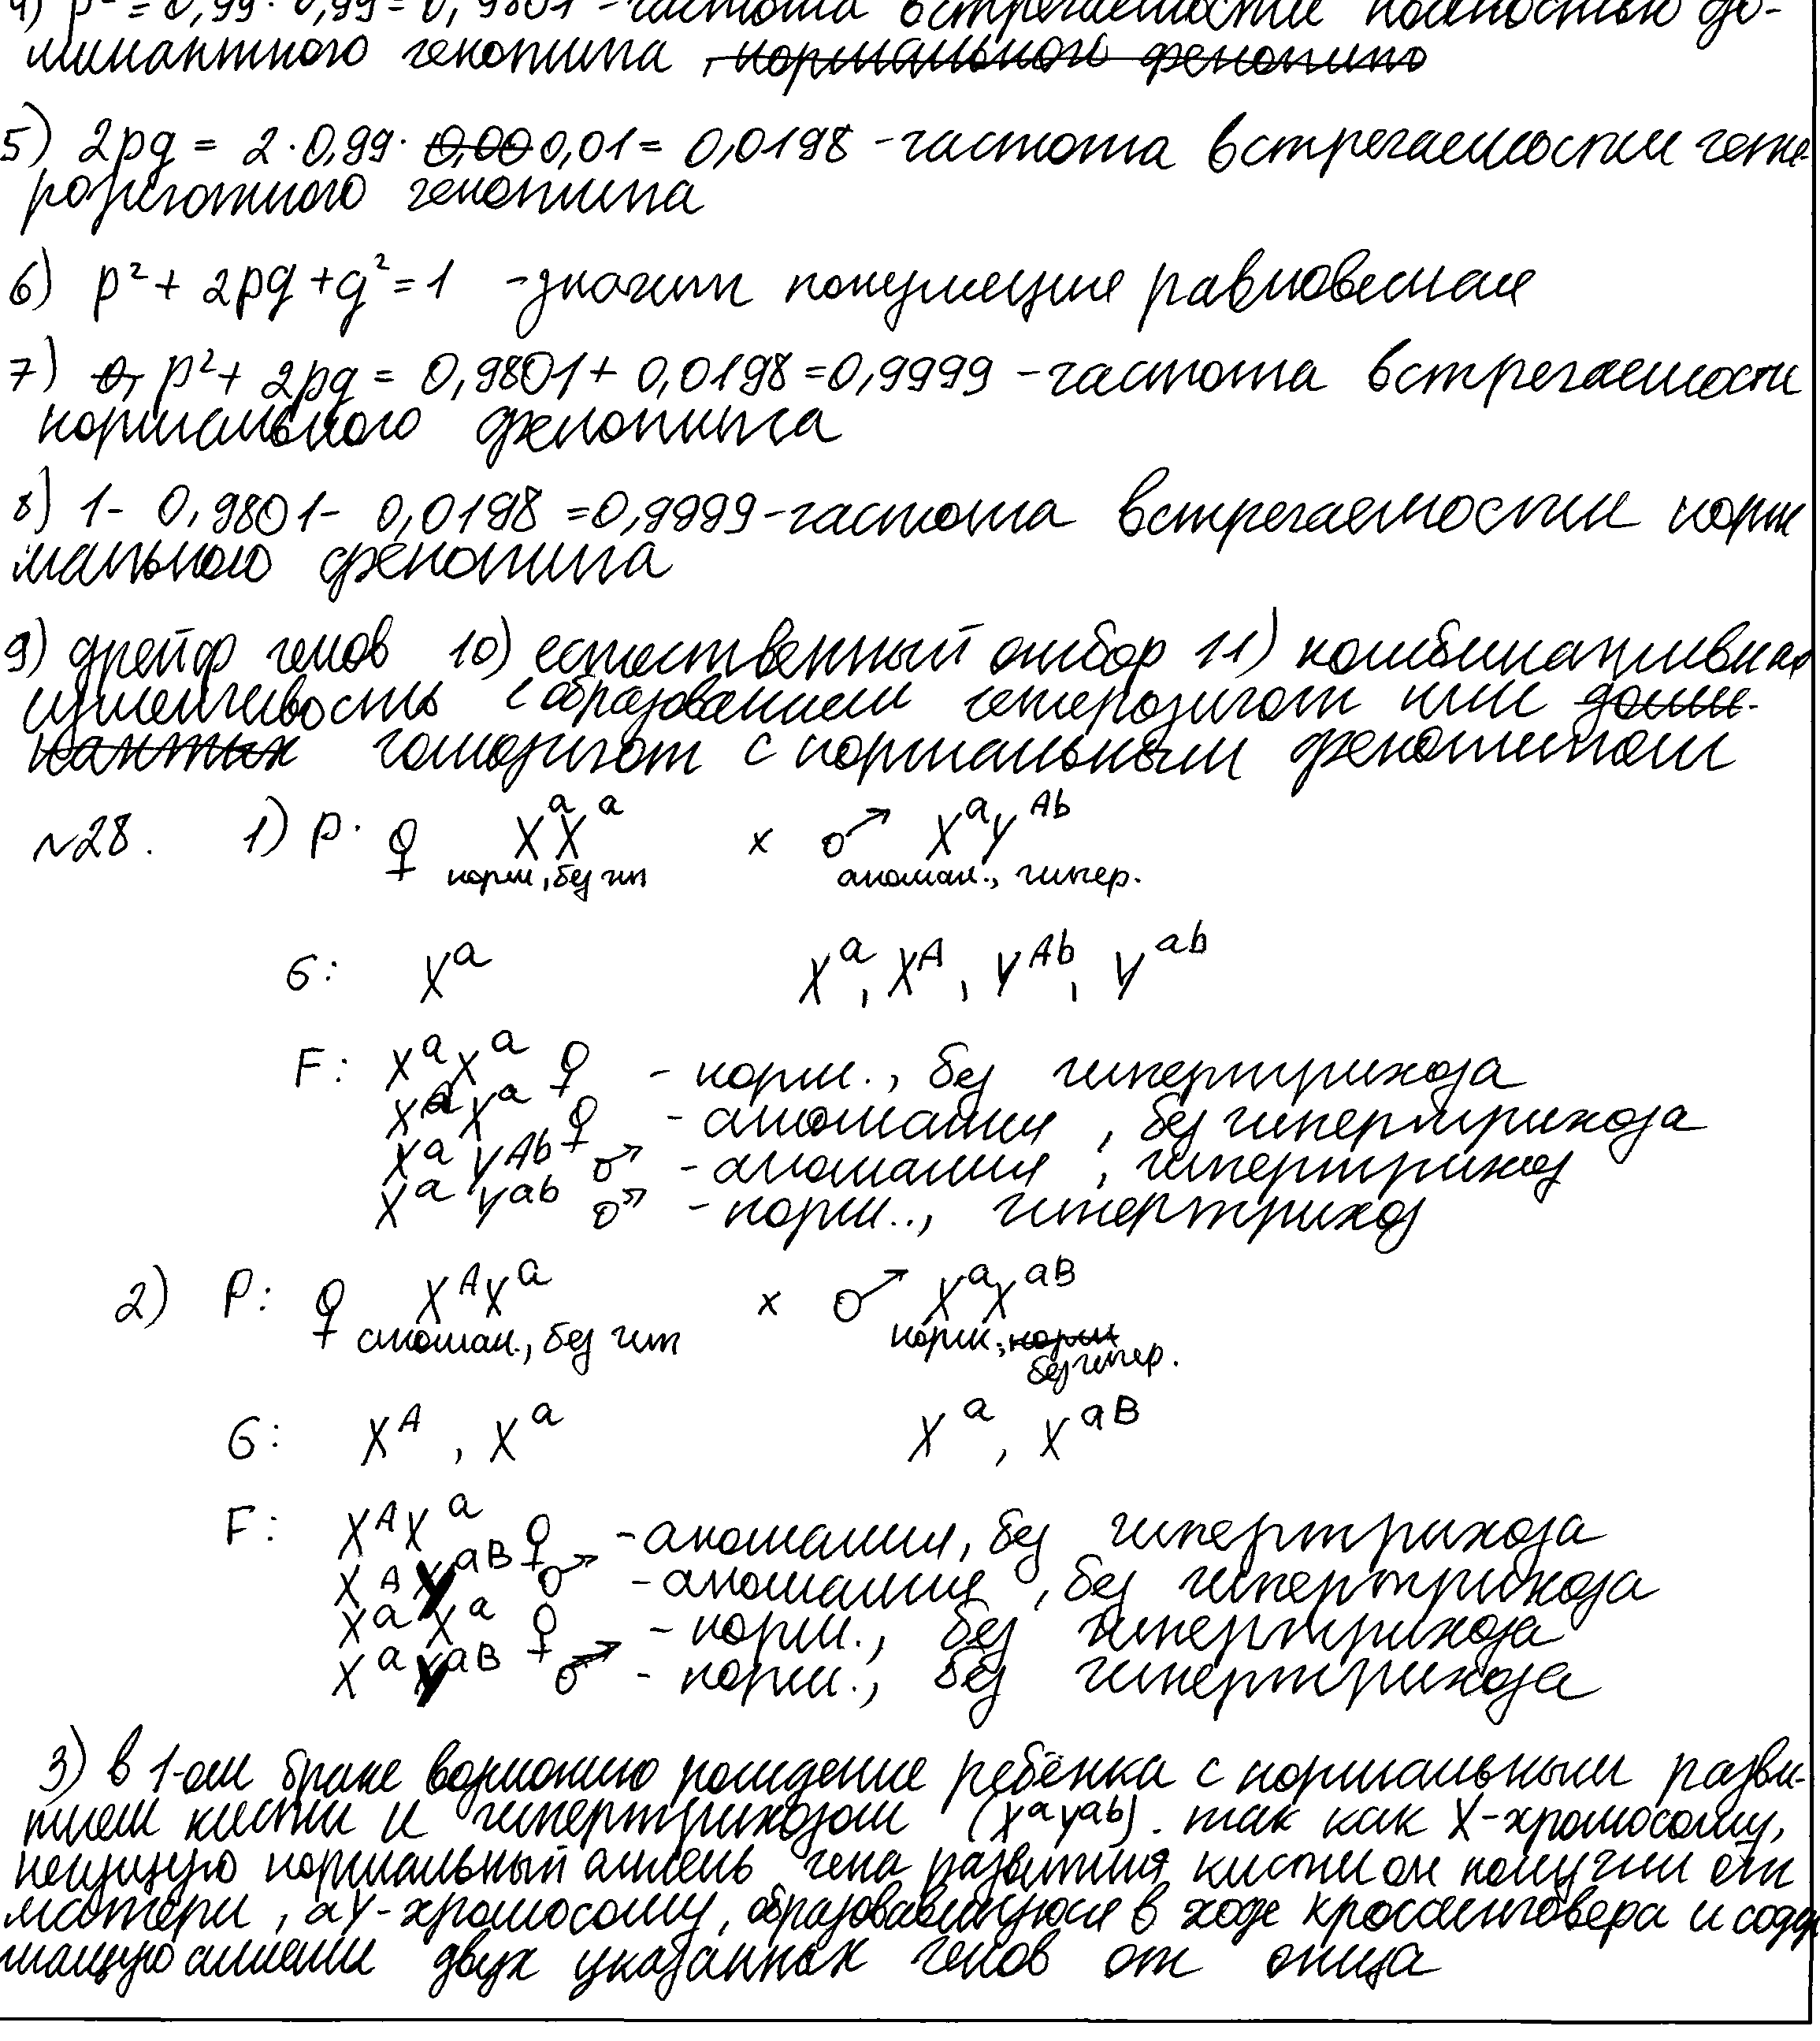 4) p² = 0,99 · 0,99 = 0,9801 - частота встречаемости полностью до-
минантного генотипа , нормального фенотипа
5) 2pq = 2 · 0,99 · 0,00 0,01 = 0,0198 - частота встречаемости гете-
розиготного генотипа
6) p² + 2pq + q² = 1 - значит популяция равновесная
7) 0, p² + 2pq = 0,9801 + 0,0198 = 0,9999 - частота встречаемости
нормального фенотипа
8) 1 - 0,9801 - 0,0198 = 0,9999 - частота встречаемости норм
мального фенотипа
9) дрейф генов 10) естественный отбор 11) комбинативная
изменчивость с образованием гетерозигот или доми-
нантных гомозигот с нормальным фенотипом
№28. 1) P. ♀ XᵃXᵃ x ♂ XᵃYᴬᵇ
норм, без гип аномал., гипер.
G: Xᵃ Xᵃ, Xᴬ, Yᴬᵇ, Yᵃᵇ
F: XᵃXᵃ ♀ - норм., без гипертрихоза
XᴬXᵃ ♀ - аномалия, без гипертрихоза
XᵃYᴬᵇ ♂ - аномалия, гипертрихоз
XᵃYᵃᵇ ♂ - норм.., гипертрихоз
2) P: ♀ XᴬXᵃ x ♂ XᵃXᵃᴮ
аномал., без гип норм, норм
без гипер.
G: Xᴬ, Xᵃ Xᵃ, Xᵃᴮ
F: XᴬXᵃ ♀ - аномалия, без гипертрихоза
XᴬYᵃᴮ ♂ - аномалия, без гипертрихоза
XᵃXᵃ ♀ - норм., без гипертрихоза
XᵃYᵃᴮ ♂ - норм., без гипертрихоза
3) в 1-ом браке возможно рождение ребёнка с нормальным разви-
тием кисти и гипертрихозом (XᵃYᵃᵇ). так как X-хромосому,
несущую нормальный аллель гена развития кисти он получил от
матери, а Y-хромосому, образовавшуюся в ходе кроссинговера и содер
жащую аллели двух указанных генов от отца